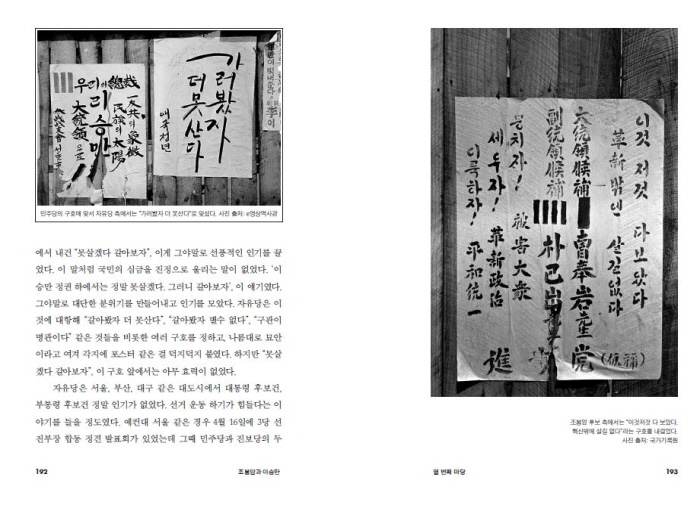 우리의
總裁
리승만
大統領으로
反共의 象徵
民族의 太陽
가러봤자
더 못산다
애국청년
민주당의 구호에 맞서 자유당 측에서는 “가러봤자 더 못산다”로 맞섰다. 사진 출처: e영상역사관
에서 내건 “못살겠다 갈아보자”, 이게 그야말로 선풍적인 인기를 끌
었다. 이 말처럼 국민의 심금을 진정으로 울리는 말이 없었다. ‘이
승만 정권 하에서는 정말 못살겠다. 그러니 갈아보자’, 이 얘기였다.
그야말로 대단한 분위기를 만들어내고 인기를 모았다. 자유당은 이
것에 대항해 “갈아봤자 더 못산다”, “갈아봤자 별수 없다”, “구관이
명관이다” 같은 것들을 비롯한 여러 구호를 정하고, 나름대로 묘안
이라고 여겨 각지에 포스터 같은 걸 덕지덕지 붙였다. 하지만 “못살
겠다 갈아보자”, 이 구호 앞에서는 아무 효력이 없었다.
자유당은 서울, 부산, 대구 같은 대도시에서 대통령 후보건,
부통령 후보건 정말 인기가 없었다. 선거 운동 하기가 힘들다는 이
야기를 들을 정도였다. 예컨대 서울 같은 경우 4월 16일에 3당 선
전부장 합동 정견 발표회가 있었는데 그때 민주당과 진보당의 두
192
조봉암과 이승만
이것 저것 다 보았다
革新 밖엔 살길 없다
大統領候補 曺奉岩
副統領候補 朴己出
뭉치자! 被害大衆
세우자! 革新政治
이룩하자! 平和統一
進
黨
조봉암 후보 측에서는 “이것저것 다 보았다.
혁신밖에 살길 없다”라는 구호를 내걸었다.
사진 출처: 국가기록원
열 번째 마당
193